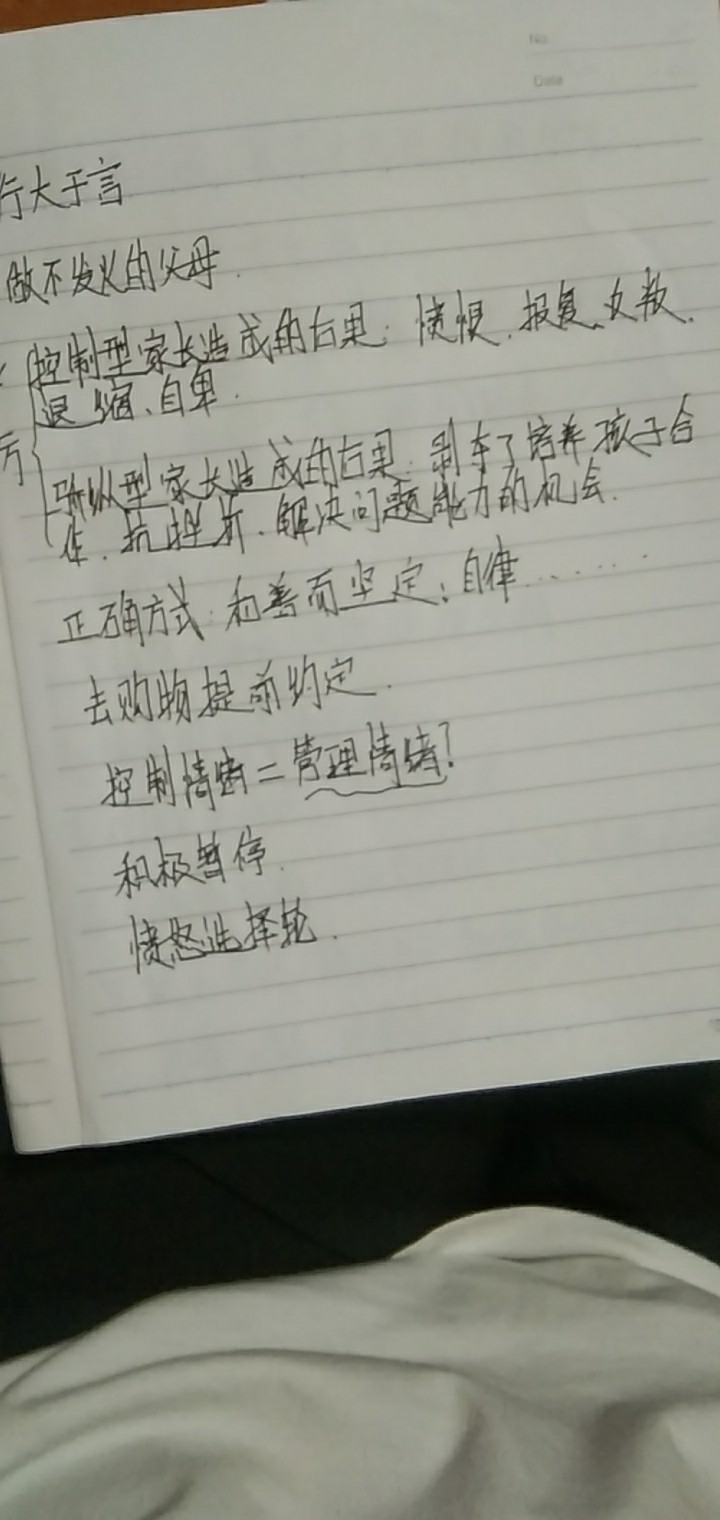 No.
Date
行大于言
做不发火的父母.
控制型家长造成的后果: 愤恨、报复、反叛、
退缩、自卑.
方
骄纵型家长造成的后果: 剥夺了培养孩子合
作、抗挫折、解决问题能力的机会.
正确方式: 和善而坚定; 自律......
去购物提前约定.
控制情绪=管理情绪?
积极暂停.
愤怒选择轮.